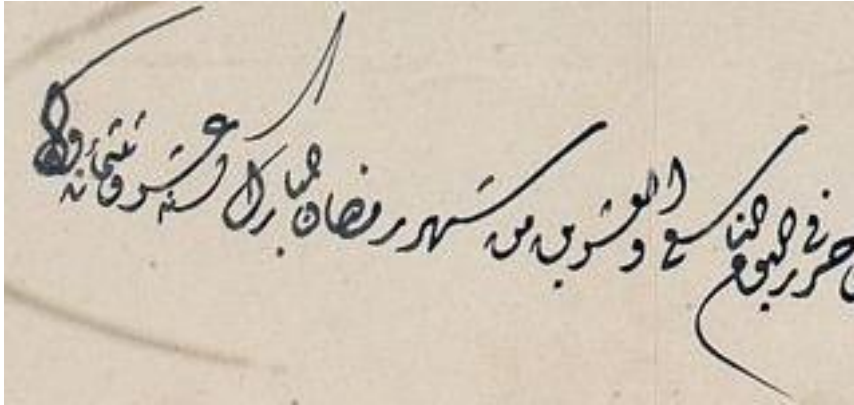 حرر في اليوم التاسع والعشرين من شهر رمضان المبارك لسنه عشر وثلثمائه والف